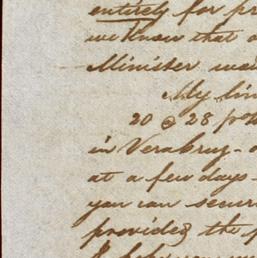 entirely for pr
we know that a
Minister wa
My lin
20 @ 28 p
in Verakruz
at a few days
you can secur
provided the p